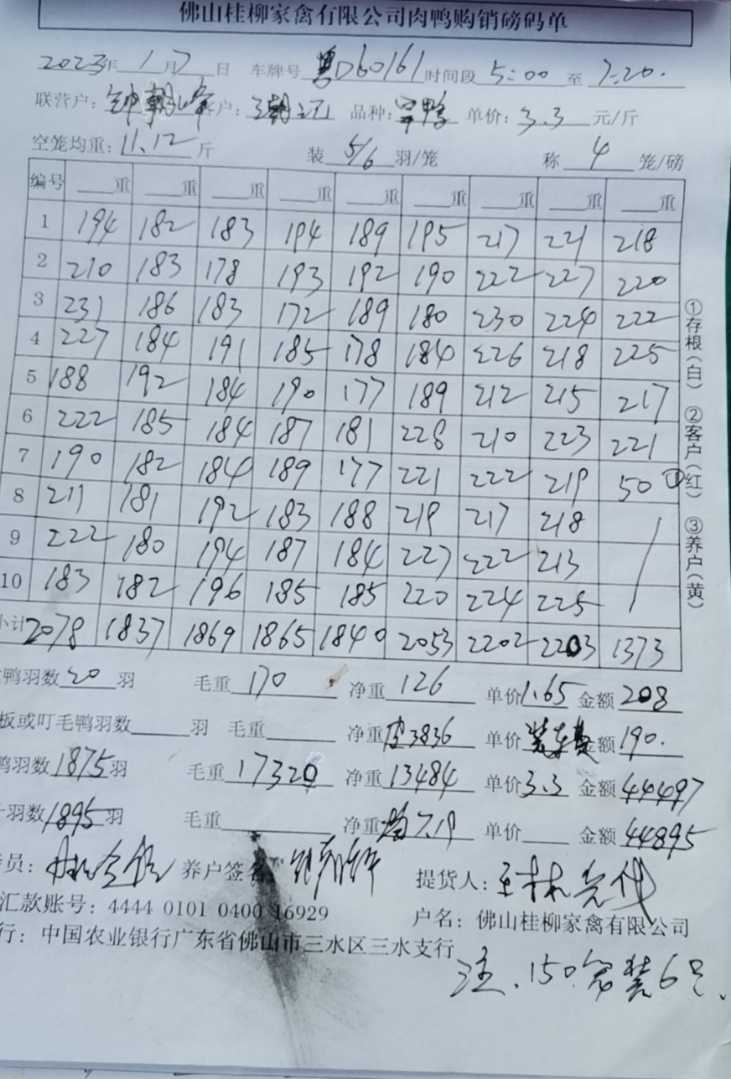 佛山桂柳家禽有限公司肉鸭购销磅码单
2023年 1 月 7 日 车牌号 粤D60161 时间段 5:00 至 7:20.
联营户: 钟朝峰 客户: 品种: 单价: 3.3 元/斤
空笼均重: 11.12 斤 装 5/6 羽/笼 称 4 笼/磅
编号 重 重 重 重 重 重 重 重 重
1 194 182 183 194 189 195 217 221 218
2 210 183 178 193 192 190 222 227 220
3 231 186 183 172 189 180 230 224 222
4 227 184 191 185 178 184 226 218 225
5 188 192 184 190 177 189 212 215 217
6 222 185 184 187 181 228 210 223 221
7 190 182 184 189 177 221 222 219 50 ①
8 211 181 192 183 188 219 217 218
9 222 180 194 187 184 227 222 213
10 183 182 196 185 185 220 224 225
小计 2078 1837 1869 1865 1840 2053 2202 2203 1373
①存根(白) ②客户(红) ③养户(黄)
鸭羽数 20 羽 毛重 170 净重 126 单价 1.65 金额 208
板或叮毛鸭羽数 羽 毛重 净重 皮3836 单价 装车费 金额 190.
鸭羽数 1875 羽 毛重 17320 净重 13484 单价 3.3 金额 44497
羽数 1895 羽 毛重 净重 均7.19 单价 金额 44895
员: 养户签 提货人:
汇款账号: 4444 0101 0400 16929 户名: 佛山桂柳家禽有限公司
行: 中国农业银行广东省佛山市三水区三水支行
注.150笼装6只.